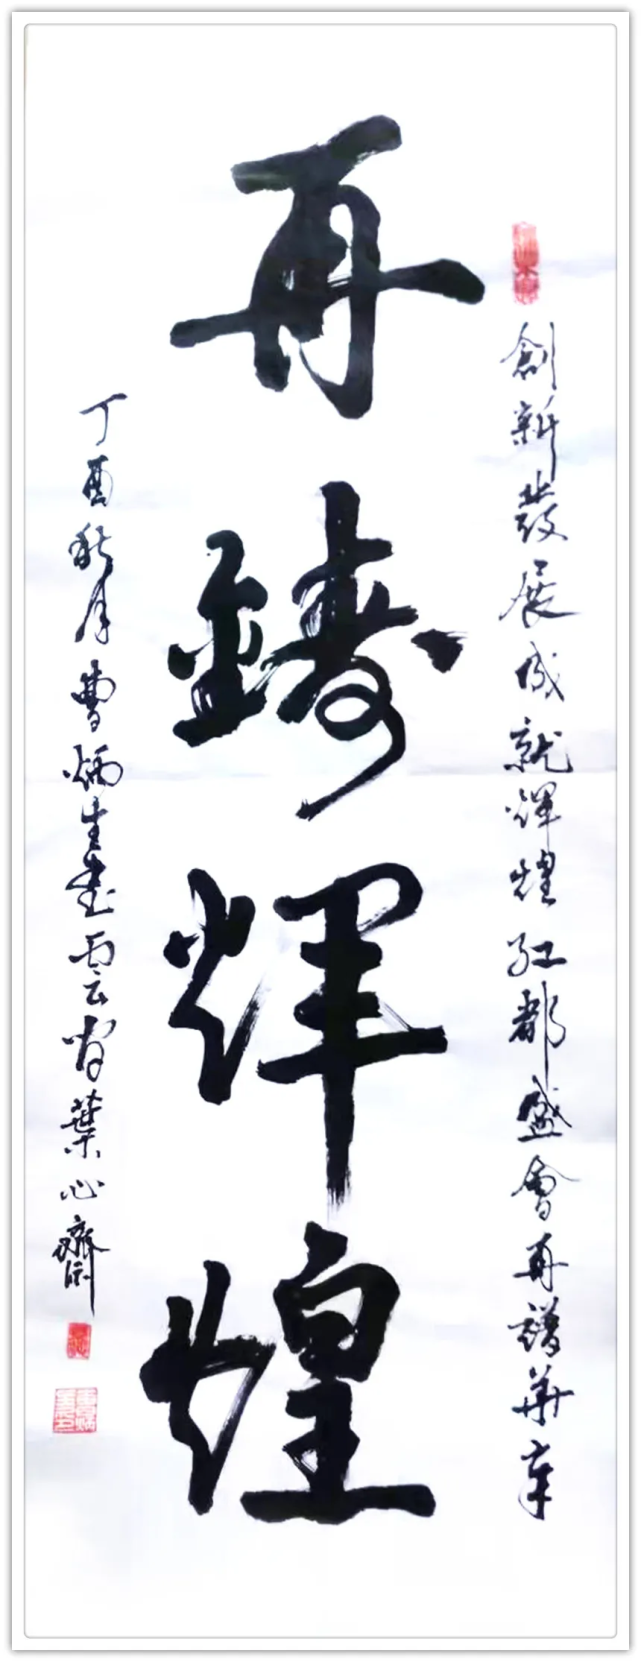 創新發展成就輝煌紅都盛會再譜華章
再鑄輝煌
丁酉秋月曹炳生書於雲岩葉心齋